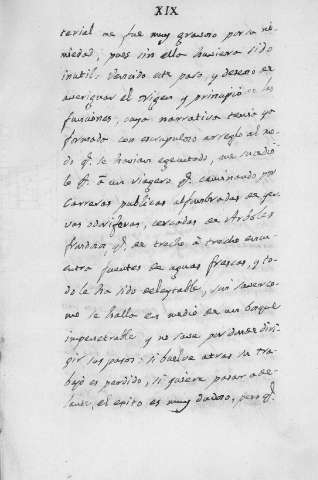 XIX
terial me fue muy gravoso por su ne-
miedad; pues sin ello huviera sido
inutil. Vencido este paso, y deseoso de
averiguar el origen y principio de las
funciones, cuya narrativa tenia ya
formada con escrupuloso arreglo al mo-
do q.e se havian egecutado, me sucedió
lo q.e á un viagero q.e caminando por
Carreras publicas alfombradas de yer-
vas odoriferas, cercadas de Arboles
frondosos, q.e de trecho á trecho encu-
entra fuentes de aguas frescas, y to-
do le ha sido deleytable, sin saver co-
mo se halla en medio de un bosque
impenetrable y no save por donde diri-
gir sus pasos: si buelve atras su tra-
bajo es perdido, si quiere pasar ade-
lante, el exito es muy dudoso, pero q.e